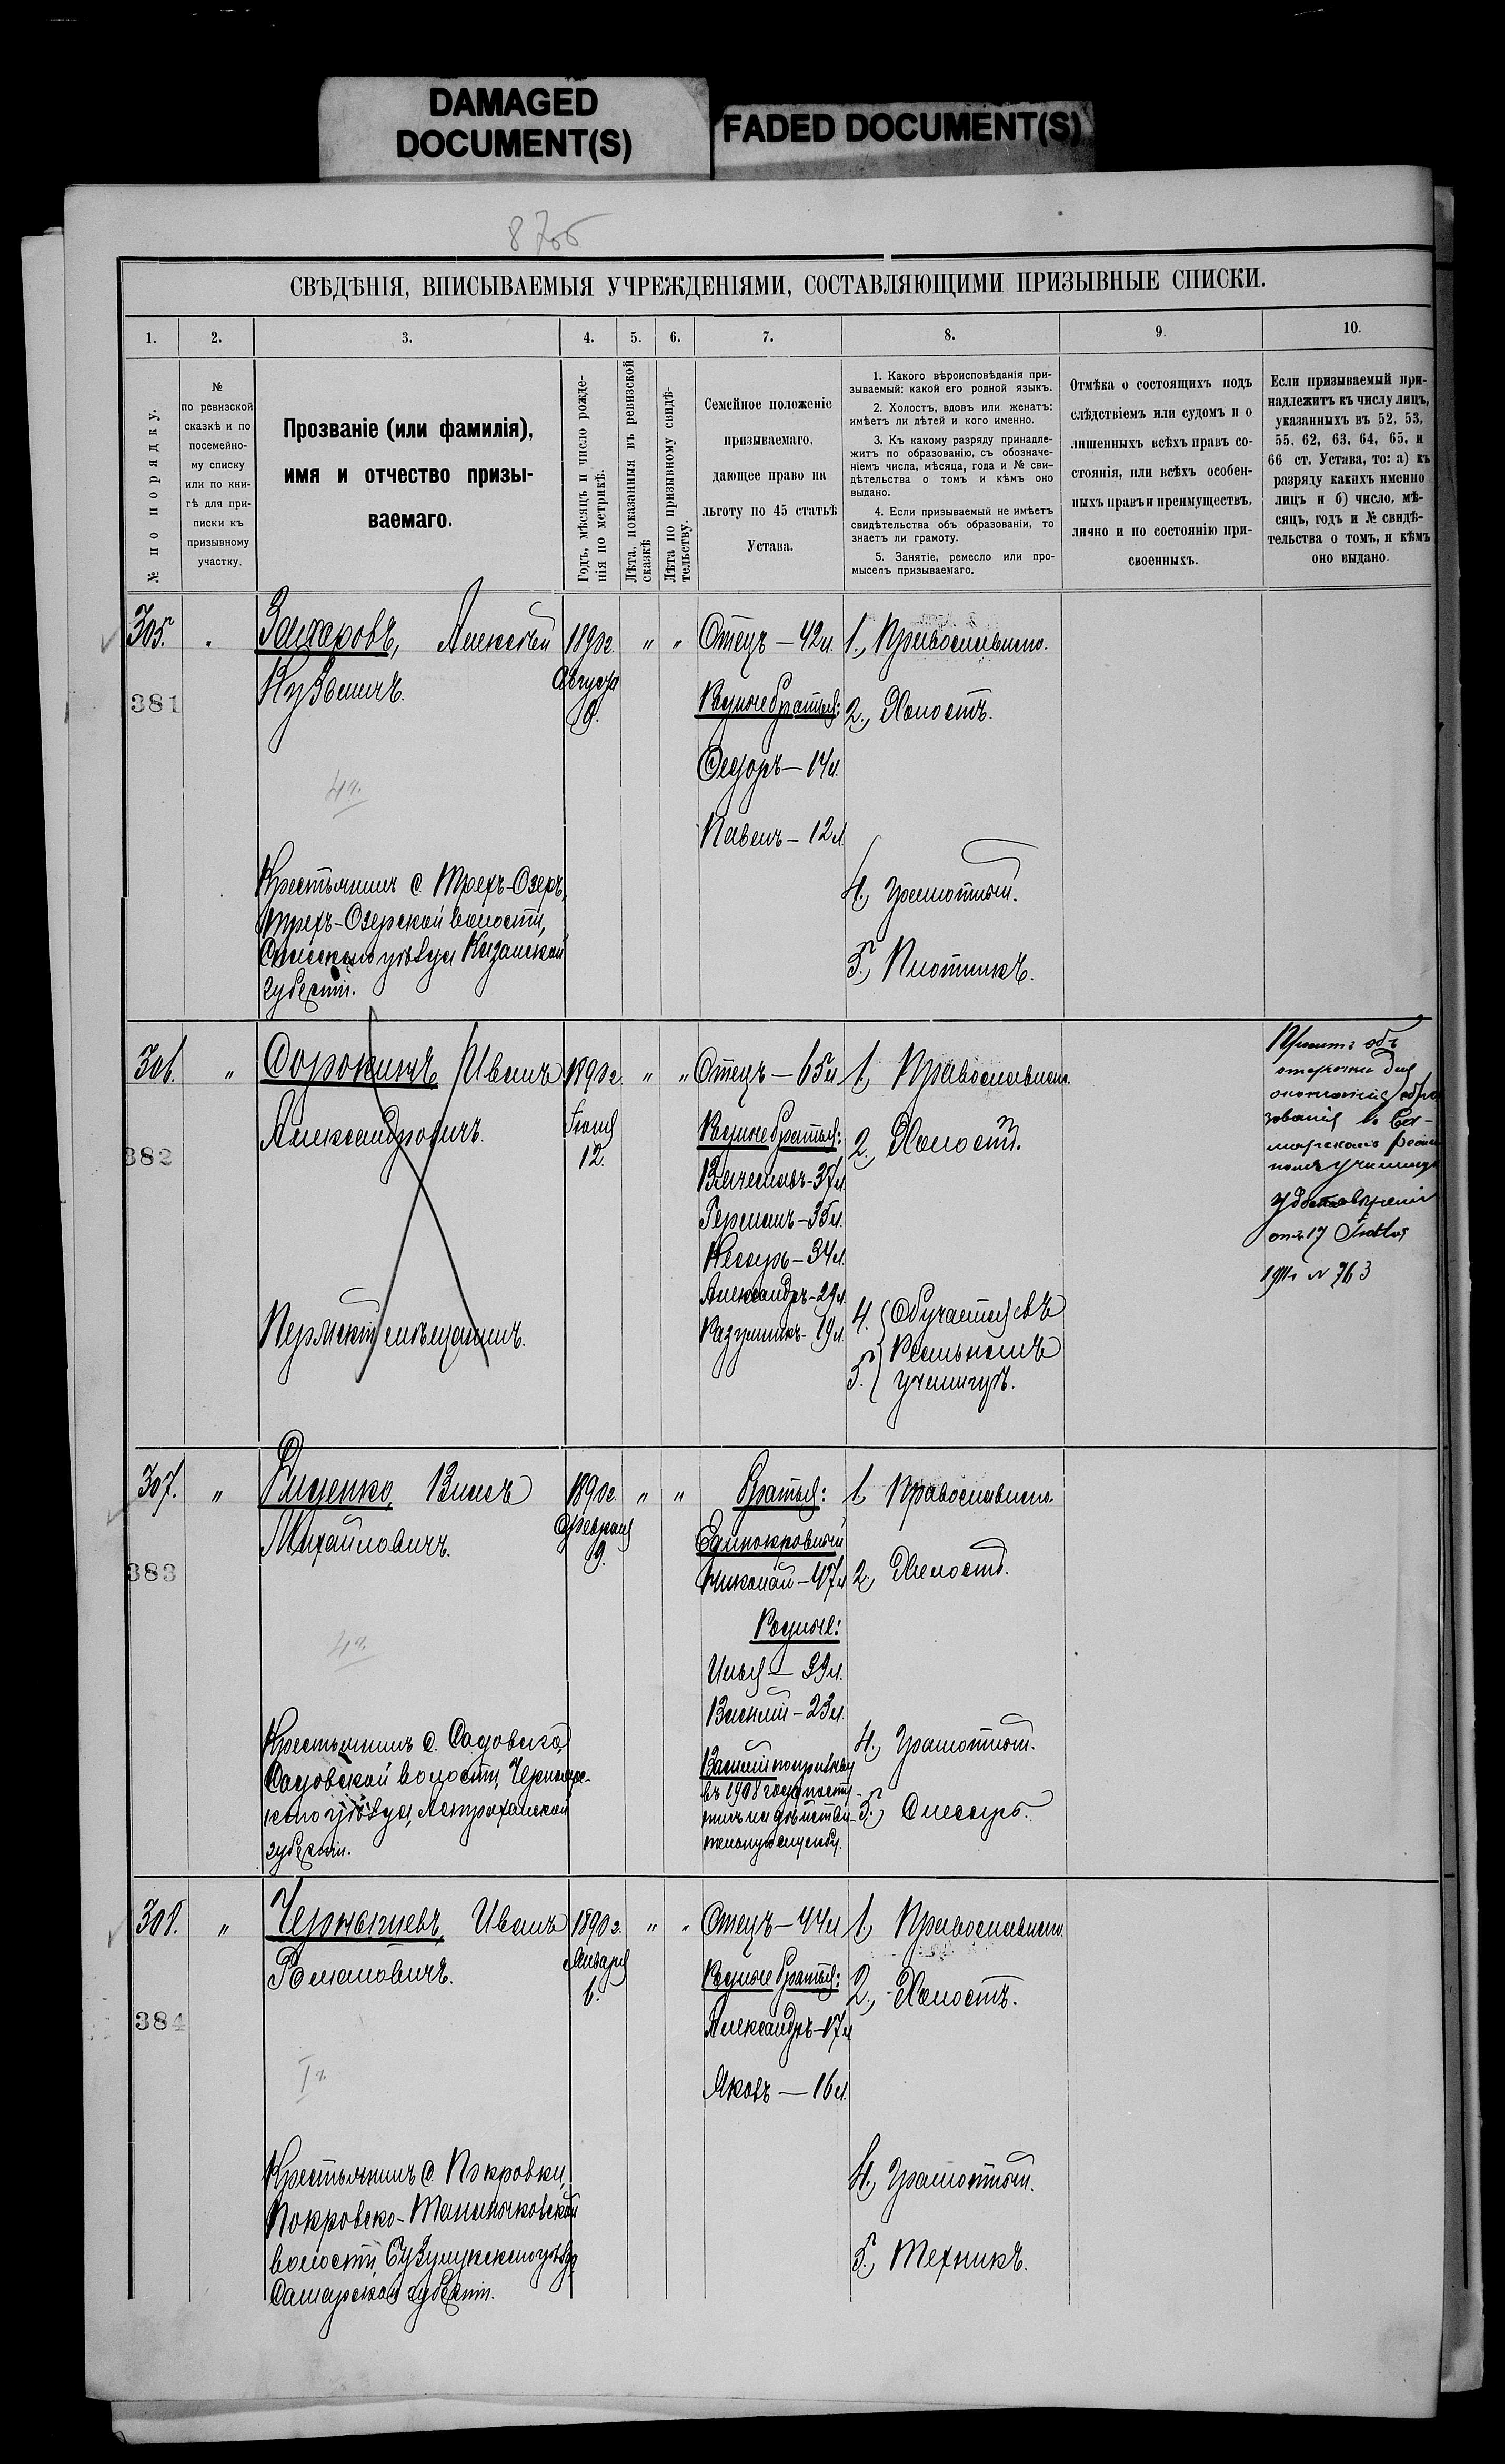 DAMAGED
DOCUMENT(S)
FADED DOCUMENT(S)
СВѢДѢНІЯ, ВПИСЫВАЕМЫЯ УЧРЕЖДЕНІЯМИ, СОСТАВЛЯЮЩИМИ ПРИЗЫВНЫЕ СПИСКИ.
1.
2.
3.
4.
5.
6.
7.
8.
9.
10.
№ по порядку.
№
по ревизской
сказкѣ и по
посемейно-
му списку
или по кни-
гѣ для при-
писки къ
призывному
участку.
Прозваніе (или фамилія),
имя и отчество призы-
ваемаго.
Годъ, мѣсяцъ и число рожде-
нія по метрикѣ.
Лѣта, показанныя въ ревизской
сказкѣ
Лѣта по призывному свидѣ-
тельству.
Семейное положеніе
призываемаго,
дающее право на
льготу по 45 статьѣ
Устава.
1. Какого вѣроисповѣданія при-
зываемый: какой его родной языкъ.
2. Холостъ, вдовъ или женатъ:
имѣетъ ли дѣтей и кого именно.
3. Къ какому разряду принадле-
житъ по образованію, съ обозначе-
ніемъ числа, мѣсяца, года и № сви-
дѣтельства о томъ и кѣмъ оно
выдано.
4. Если призываемый не имѣетъ
свидѣтельства объ образованіи, то
знаетъ ли грамоту.
5. Занятіе, ремесло или про-
мыселъ призываемаго.
Отмѣка о состоящихъ подъ
слѣдствіемъ или судомъ и о
лишенныхъ всѣхъ правъ со-
стоянія, или всѣхъ особен-
ныхъ правъ и преимуществъ,
лично и по состоянію при-
своенныхъ.
Если призываемый при-
надлежитъ къ числу лицъ,
указанныхъ въ 52, 53,
55, 62, 63, 64, 65, и
66 ст. Устава, то: а) къ
разряду какихъ именно
лицъ и б) число, мѣ-
сяцъ, годъ и № свидѣ-
тельства о томъ, и кѣмъ
оно выдано.
305.
381
Захаровъ, Алексѣй
Кузьмичъ.
4 %
Крестьянинъ с. Трехъ-Озеръ,
Трехъ-Озерской волости,
Спасскаго уѣзда Казанской
губерніи.
1890г.
Августа
9.
" "
Отецъ — 42 л.
Родные братья:
Федоръ — 14 л.
Павелъ — 12 л.
1., Православнаго.
2., Холостъ.
4., Грамотный.
5., Плотникъ.
306.
382
"
Сорокинъ Иванъ
Александровичъ.
Пермскій мѣщанинъ.
1890г.
Іюня
12.
" "
Отецъ — 65 л.
Родные братья:
Вячеславъ - 37 л.
Германъ — 35 л.
Александръ - 29 л.
Разумникъ - 19 л.
1, Православнаго.
2., Холостъ.
4. Обучается въ
5. Реальномъ
училищѣ.
объ
отсрочки для
окончанія обра
зованія въ Сез-
марскомъ реаль
номъ училищѣ
отъ 17
1911 № 763
307.
383
"
Диденко Викъ
Михайловичъ.
4 %
Крестьянинъ с. Садовскаго,
Садовской волости, Черноярс-
каго уѣзда, Астраханской
губерніи.
1890г.
Февраля
9.
" "
Братья:
Единокровный
Николай — 47 л.
Родные:
Илья — 39 л.
Василій — 23 л.
Василій по призыву
въ 1908 году посту-
пилъ на дѣйстви-
тельную службу.
1, Православнаго.
2., Холостъ.
4., Грамотный.
5., Слесарь.
308.
384
"
Чернышевъ, Иванъ
Романовичъ.
Крестьянинъ с. Покровки,
Покровско-Талычковской
волости, Бузулукскаго уѣзда,
Самарской губерніи.
1890г.
Января
6.
" "
Отецъ — 44 л.
Родные братья:
Александръ — 17 л.
Яковъ — 16 л.
1, Православнаго.
2., Холостъ.
4., Грамотный.
5., Техникъ.